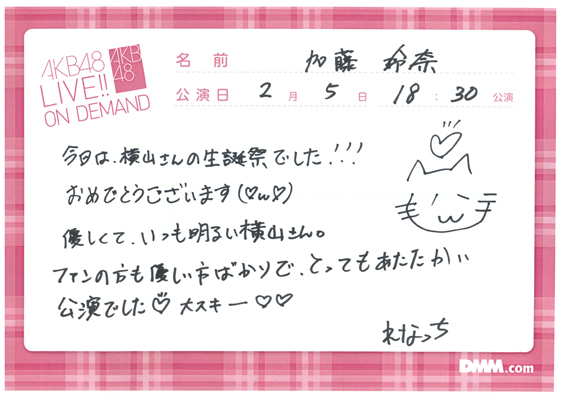 AKB48
LIVE!!
ON DEMAND
AKB
48
名前 加藤 玲奈
公演日 2月 5日 18:30 公演
今日は、横山さんの生誕祭でした!!!
おめでとうございます(♡ω♡)
優しくて、いつも明るい横山さん。
ファンの方も優しい方ばかりで、とってもあたたかい
公演でした♡ 大スキー♡♡
れなっち
DMM.com